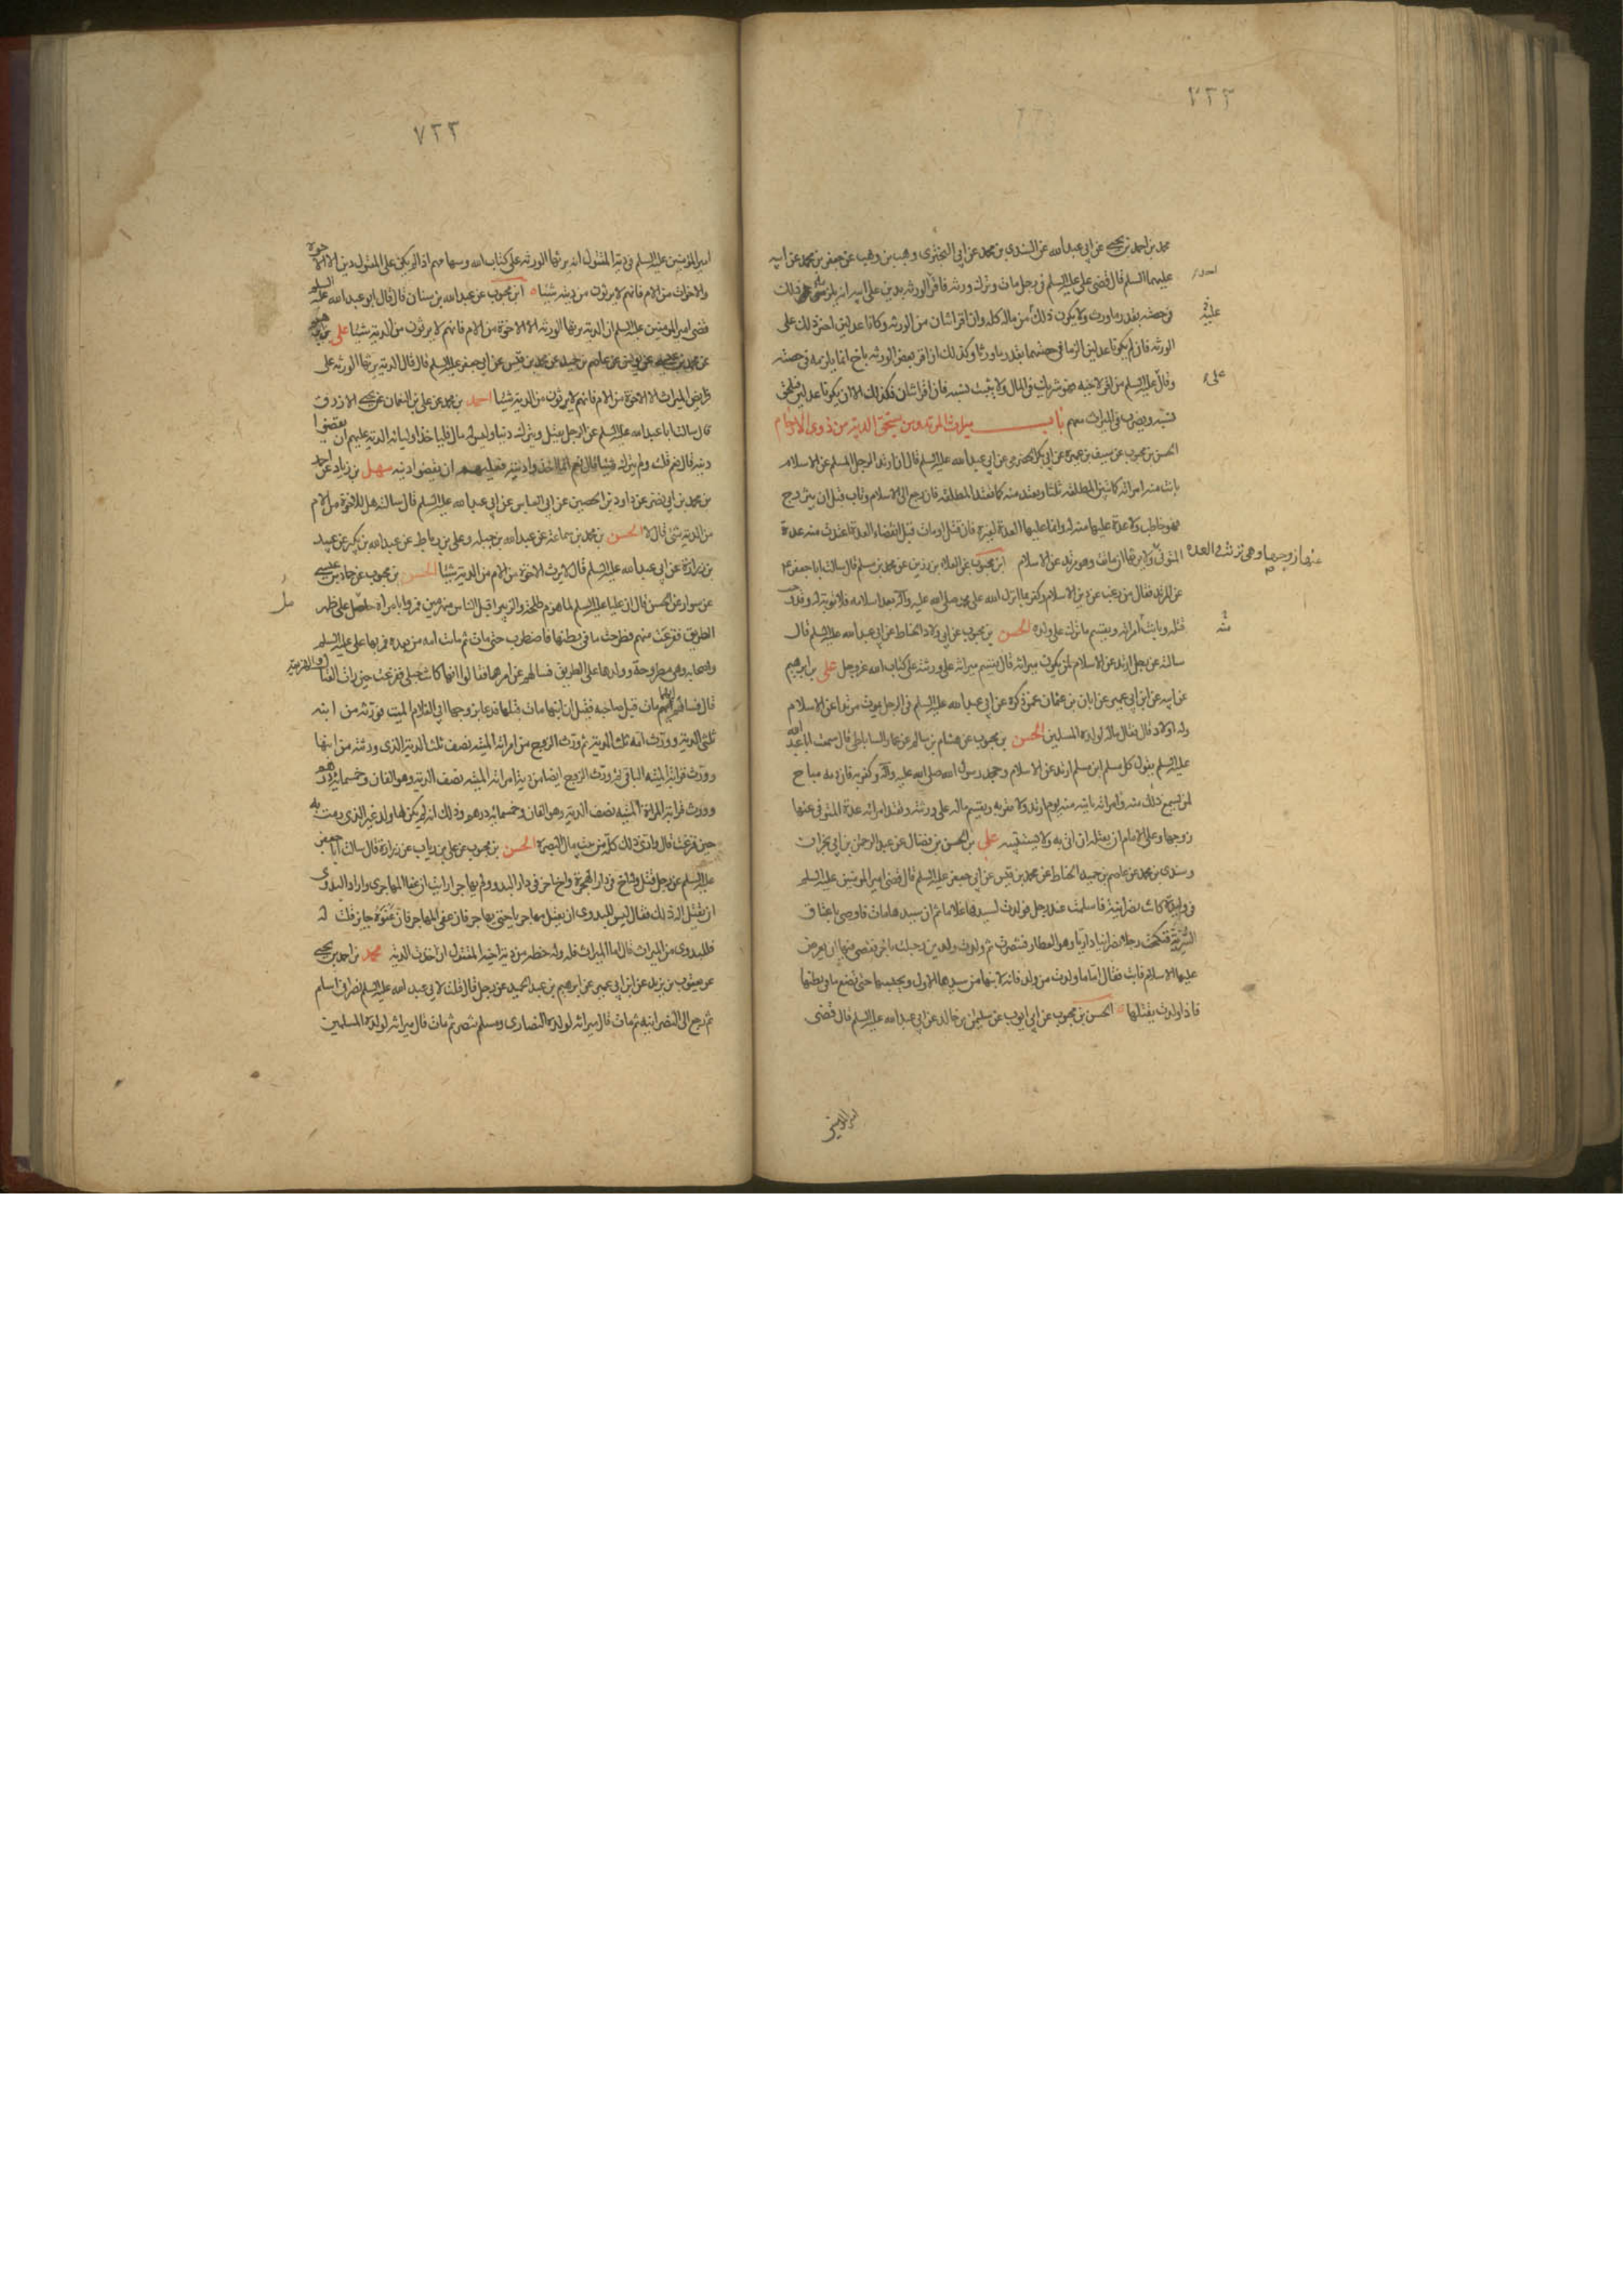 ٧٢٢
محمد بن احمد بن يحيى عن ابي عبدالله عن السندي بن محمد عن ابي البختري وهب بن وهب عن جعفر بن محمد عن ابيه
عليهما السلم قال قضى علي عليه السلم في رجل مات وترك ورثة فاقر الورثة بدين على ابيه انه يلزمه ذلك
في حصته بقدر ما ورث ولا يكون ذلك من ماله كله وان اقر اثنان من الورثة وكانا عدلين اجيز ذلك على
الورثة فان لم يكونا عدلين الزما في حصتهما بقدر ما ورثا وكذلك ان اقر بعض الورثة باخ انما يلزمه في حصته
وقال علي عليه السلم من اقر لاخيه فهو شريك في المال ولا يثبت نسبه فان اقر اثنان فكذلك الا ان يكونا عدلين فيلحق
نسبه ويضرب في الميراث معهم باب ميراث المرتد ومن يستحق الدية من ذوي الارحام
الحسن بن محبوب عن سيف بن عميرة عن ابي بكر الحضرمي عن ابي عبدالله عليه السلم قال ان ارتد الرجل المسلم عن الاسلام
بانت منه امراته كما تبين المطلقة ثلثا وتعتد منه كما تعتد المطلقة فان رجع الى الاسلام وتاب قبل ان يتزوج
فهو خاطب ولا عدة عليها منه له وانما عليها العدة لغيره فان قتل او مات قبل انقضاء العدة اعتدت منه عدة
المتوفى عنها زوجها وهي ترثه في العدة ولا يرثها ان ماتت وهو مرتد عن الاسلام ابن محبوب عن العلاء بن رزين عن محمد بن مسلم قال سالت ابا جعفر ع
عن المرتد فقال من رغب عن دين الاسلام وكفر بما انزل الله على محمد صلى الله عليه وآله بعد اسلامه فلا توبة له وقد وجب
قتله وبانت امراته ويقسم ما ترك على ولده الحسن بن محبوب عن ابي ولاد الحناط عن ابي عبدالله عليه السلم قال
سالته عن رجل ارتد عن الاسلام لمن يكون ميراثه قال يقسم ميراثه على ورثته على كتاب الله عز وجل علي بن ابرهيم
عن ابيه عن ابن ابي عمير عن ابان بن عثمان عمن ذكره عن ابي عبدالله عليه السلم في الرجل يموت مرتدا عن الاسلام
وله اولاد قال فقال ماله لولده المسلمين الحسن بن محبوب عن هشام بن سالم عن عمار الساباطي قال سمعت ابا عبد الله
عليه السلم يقول كل مسلم ابن مسلم ارتد عن الاسلام وجحد رسول الله صلى الله عليه وآله وكذبه فان دمه مباح
لمن سمع ذلك منه وامراته باينة منه يوم ارتد ولا تقربه ويقسم ماله على ورثته وتعتد امراته عدة المتوفى عنها
زوجها وعلى الامام ان يقتله ان اتى به ولا يستتيبه علي بن الحسن بن فضال عن عبد الرحمن بن ابي نجران
وسندي بن محمد عن عاصم بن حميد الحناط عن محمد بن قيس عن ابي جعفر عليه السلم قال قضى امير المومنين عليه السلم
في وليدة كانت نصرانية فاسلمت عند رجل فولدت لسيدها غلاما ثم ان سيدها مات فاوصى باعتاق
السرية فنكحت رجلا نصرانيا داريا وهو العطار فتنصرت ثم ولدت ولدين وحبلت باخر فقضى فيها ان يعرض
عليها الاسلام فابت فقال اما ما ولدت من ولد فانه لابنها من سيدها الاول ويحبسها حتى تضع ما في بطنها
فاذا ولدت يقتلها الحسن بن محبوب عن ابي ايوب عن سليمن بن خالد عن ابي عبدالله عليه السلم قال قضى
امير المومنين
٧٢٣
امير المومنين عليه السلم في دية المقتول انه يرثها الورثة على كتاب الله وسهامهم اذا لم يكن على المقتول دين الا الاخوة
والاخوات من الام فانهم لا يرثون من ديته شيئا ابن محبوب عن عبدالله بن سنان قال قال ابو عبدالله عليه السلم
قضى امير المومنين عليه السلم ان الدية يرثها الورثة الا الاخوة من الام فانهم لا يرثون من الدية شيئا علي بن ابرهيم
عن محمد بن عيسى عن يونس عن عاصم بن حميد عن محمد بن قيس عن ابي جعفر عليه السلم قال قال الدية يرثها الورثة على
فرايض الميراث الا الاخوة من الام فانهم لا يرثون من الدية شيئا احمد بن محمد عن علي بن النعمان عن يحيى الازرق
قال سالت ابا عبدالله عليه السلم عن الرجل يقتل ويترك دينا وليس له مال فياخذ اوليائه الدية عليهم ان يقضوا
دينه قال نعم قلت ولم يترك شيئا قال نعم انما اخذوا ديته فعليهم ان يقضوا دينه سهل بن زياد عن احمد
بن محمد بن ابي نصر عن داود بن الحصين عن ابي العباس عن ابي عبدالله عليه السلم قال سالته هل للاخوة من الام
من الدية شئ قال لا الحسن بن محمد بن سماعة عن عبدالله بن جبلة وعلي بن رباط عن عبدالله بن بكير عن عبيد
بن زرارة عن ابي عبدالله عليه السلم قال لا يرث الاخوة من الام من الدية شيئا الحسن بن محبوب عن حماد بن عيسى
عن سوار عن الحسن قال ان عليا عليه السلم لما هزم طلحة والزبير اقبل الناس منهزمين فمروا بامراة حامل على ظهر
الطريق ففزعت منهم فطرحت ما في بطنها فاضطرب حتى مات ثم ماتت امه من بعده فمر بها علي عليه السلم
واصحابه وهي مطروحة وولدها على الطريق فسالهم عن امرها فقالوا انها كانت حبلى ففزعت حين رات القتال والهزيمة
قال فسالهم ايهما مات قبل صاحبه فقيل ان ابنها مات قبلها فدعا بزوجها ابي الغلام الميت فورثه من ابنه
ثلثي الدية وورث امه ثلث الدية ثم ورث الزوج من امراته الميتة نصف ثلث الدية الذي ورثته من ابنها
وورث قرابة الميتة الباقي ثم ورث الزوج ايضا من دية امراته الميتة نصف الدية وهو الفان وخمسمائة درهم
وورث قرابة المراة الميتة نصف الدية وهو الفان وخمسمائة درهم وذلك انه لم يكن لها ولد غير الذي رمت به
حين فزعت قال وادى ذلك كله من بيت مال البصرة الحسن بن محبوب عن علي بن رياب عن زرارة قال سالت ابا جعفر
عليه السلم عن رجل قتل وله اخ في دار الهجرة واخ اخر في دار البدو ولم يهاجر ارايت ان عفا المهاجري واراد البدوي
ان يقتل اله ذلك فقال ليس للبدوي ان يقتل مهاجريا حتى يهاجر فان عفى المهاجر فان عفوه جايز قلت له
فللبدوي من الميراث قال اما الميراث فله وله حظه من دية اخيه المقتول ان اخذت الدية محمد بن احمد بن يحيى
عن يعقوب بن يزيد عن ابن ابي عمير عن ابرهيم بن عبد الحميد عن رجل قال قلت لابي عبدالله عليه السلم نصراني اسلم
ثم رجع الى النصرانية ثم مات قال ميراثه لولده النصارى ومسلم تنصر ثم مات قال ميراثه لولده المسلمين